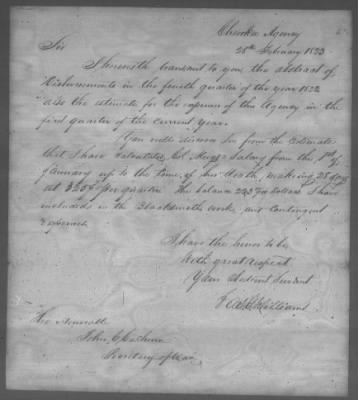 Cherokee Agency
28th February 1823
Sir
I herewith transmit to you the abstract of
Disbursements in the fourth quarter of the year 1822
also the estimate for the expenses of this Agency in the
first quarter of the current year.
You will discover Sir from the Estimate
that I have calculated Col Meigs Salary from the 1st of
January up to the time of his death, making 28 days
at 325$ per quarter. The balance 223 dollars I have
included in the Blacksmiths work and contingent
expenses.
I have the honor to be
With great respect
Your Obedient Servant
Williams
The Honorable
John C Calhoun
Secretary of War